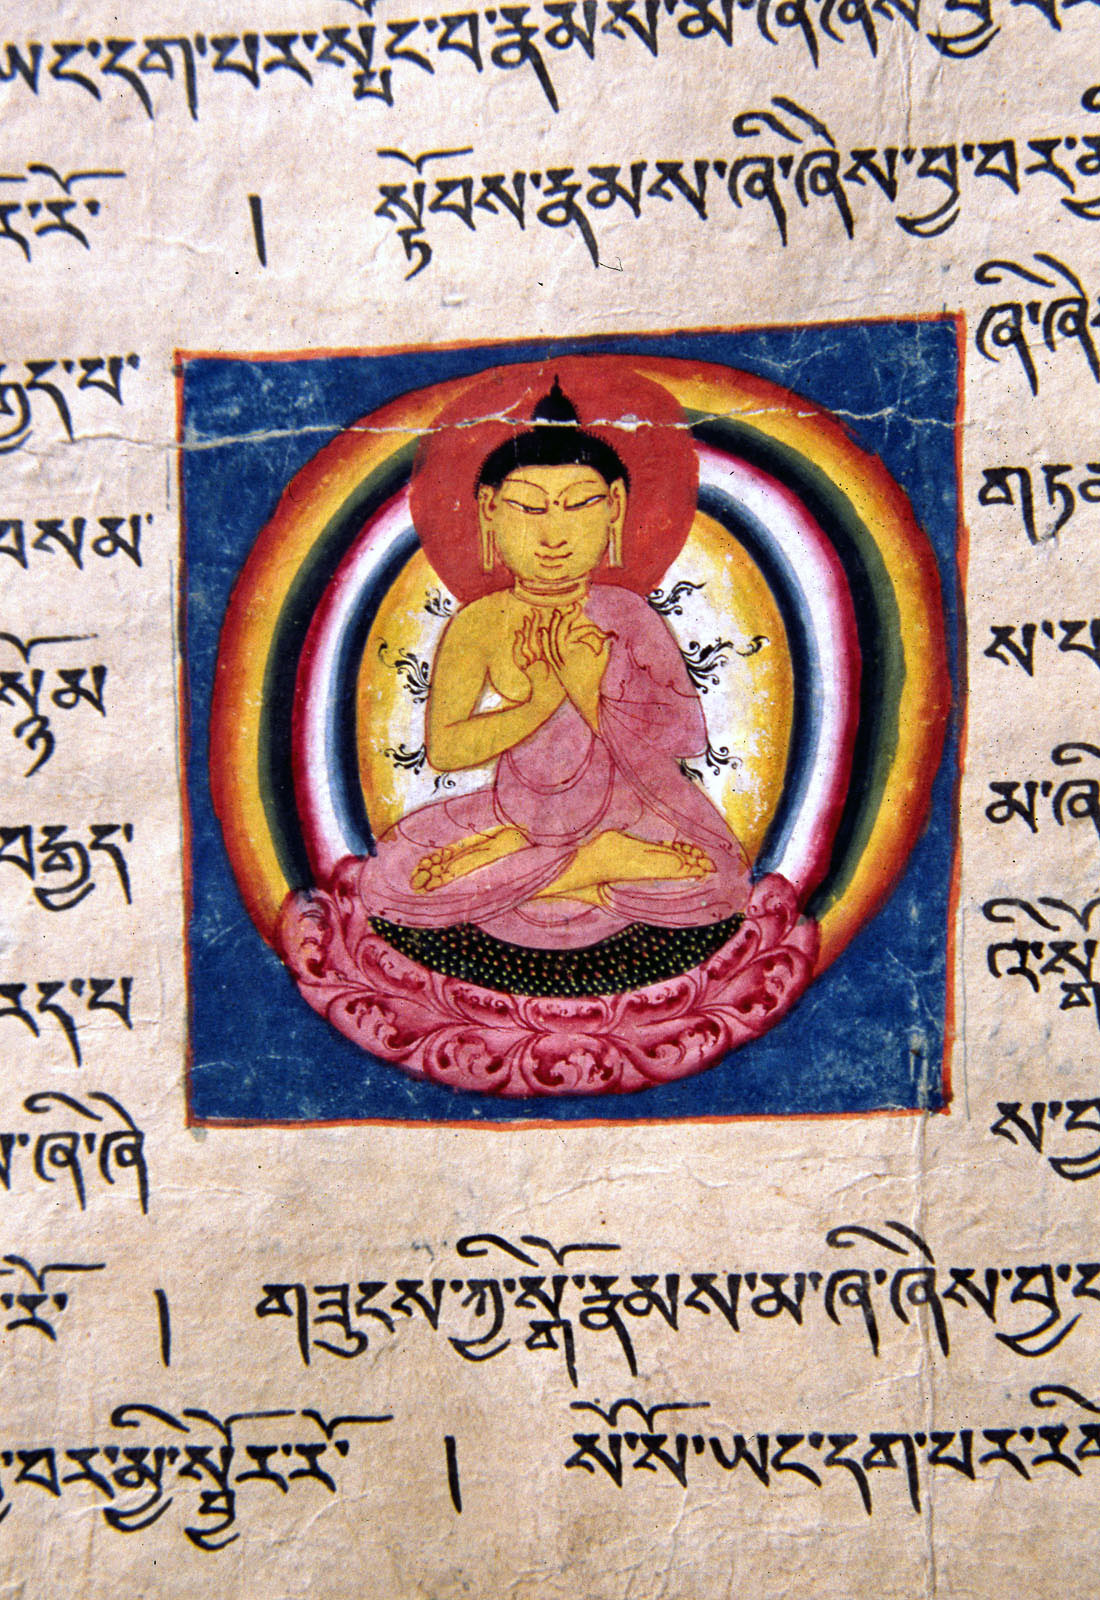 ཡང་དག་པར་སྤང་བ་རྣམས་མ་ཞི་ཞེས་བྱ་བར
རོ། སྟོབས་རྣམས་ཞི་ཞེས་བྱ་བར་མི
ཞི་ཞེས
རྒྱད་པ་
གཏ
བསམ་
ས་པ
སྙོམ
མ་ཞི
བརྒྱད་
ལེ་སྒོ
རད་པ
ས་བྱ
མ་ཞི་ཞེ
ར་རོ། གཟུངས་ཀྱི་སྒོ་རྣམས་མ་ཞི་ཞེས་བྱ་བ
་བར་མྱི་སྦྱོར་རོ། སོ་སོ་ཡང་དག་པར་རིག